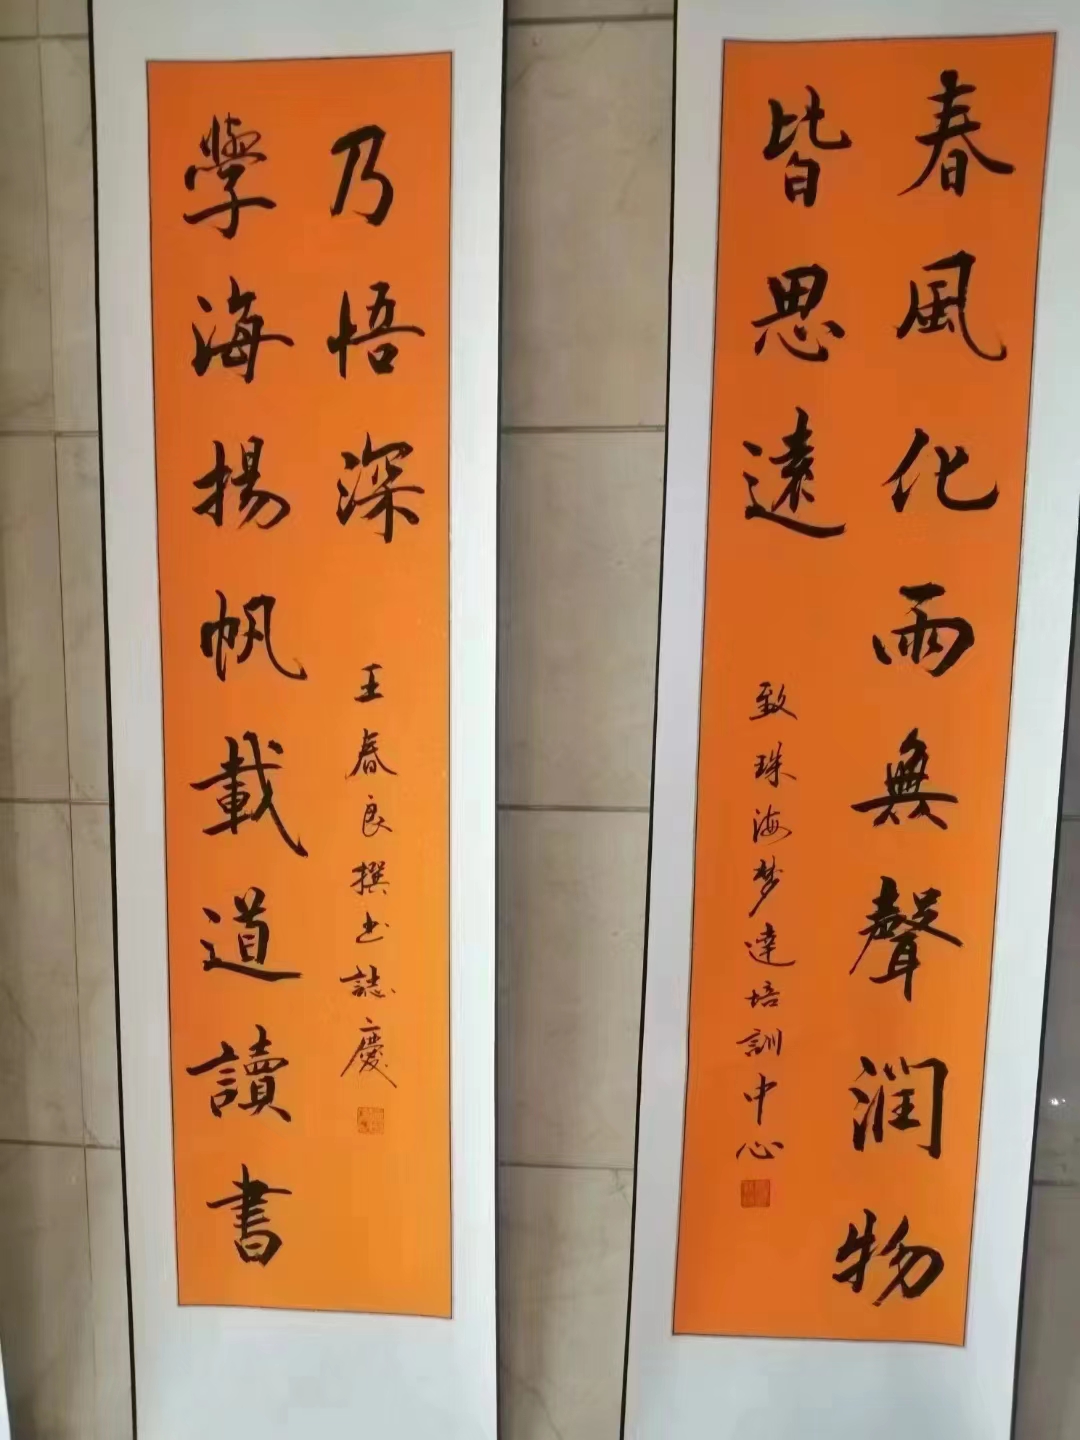 春風化雨無聲潤物
皆思遠
致珠海梦達培訓中心
學海揚帆載道讀書
乃悟深
王春良撰书誌慶